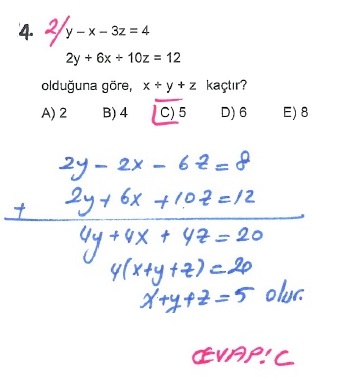 4. 2/ y – x – 3z = 4
2y + 6x + 10z = 12
olduğuna göre, x + y + z kaçtır?
A) 2 B) 4 C) 5 D) 6 E) 8
2y – 2x – 6z = 8
2y + 6x + 10z = 12
+
4y + 4x + 4z = 20
4(x+y+z) = 20
x+y+z = 5 olur.
CEVAP: C